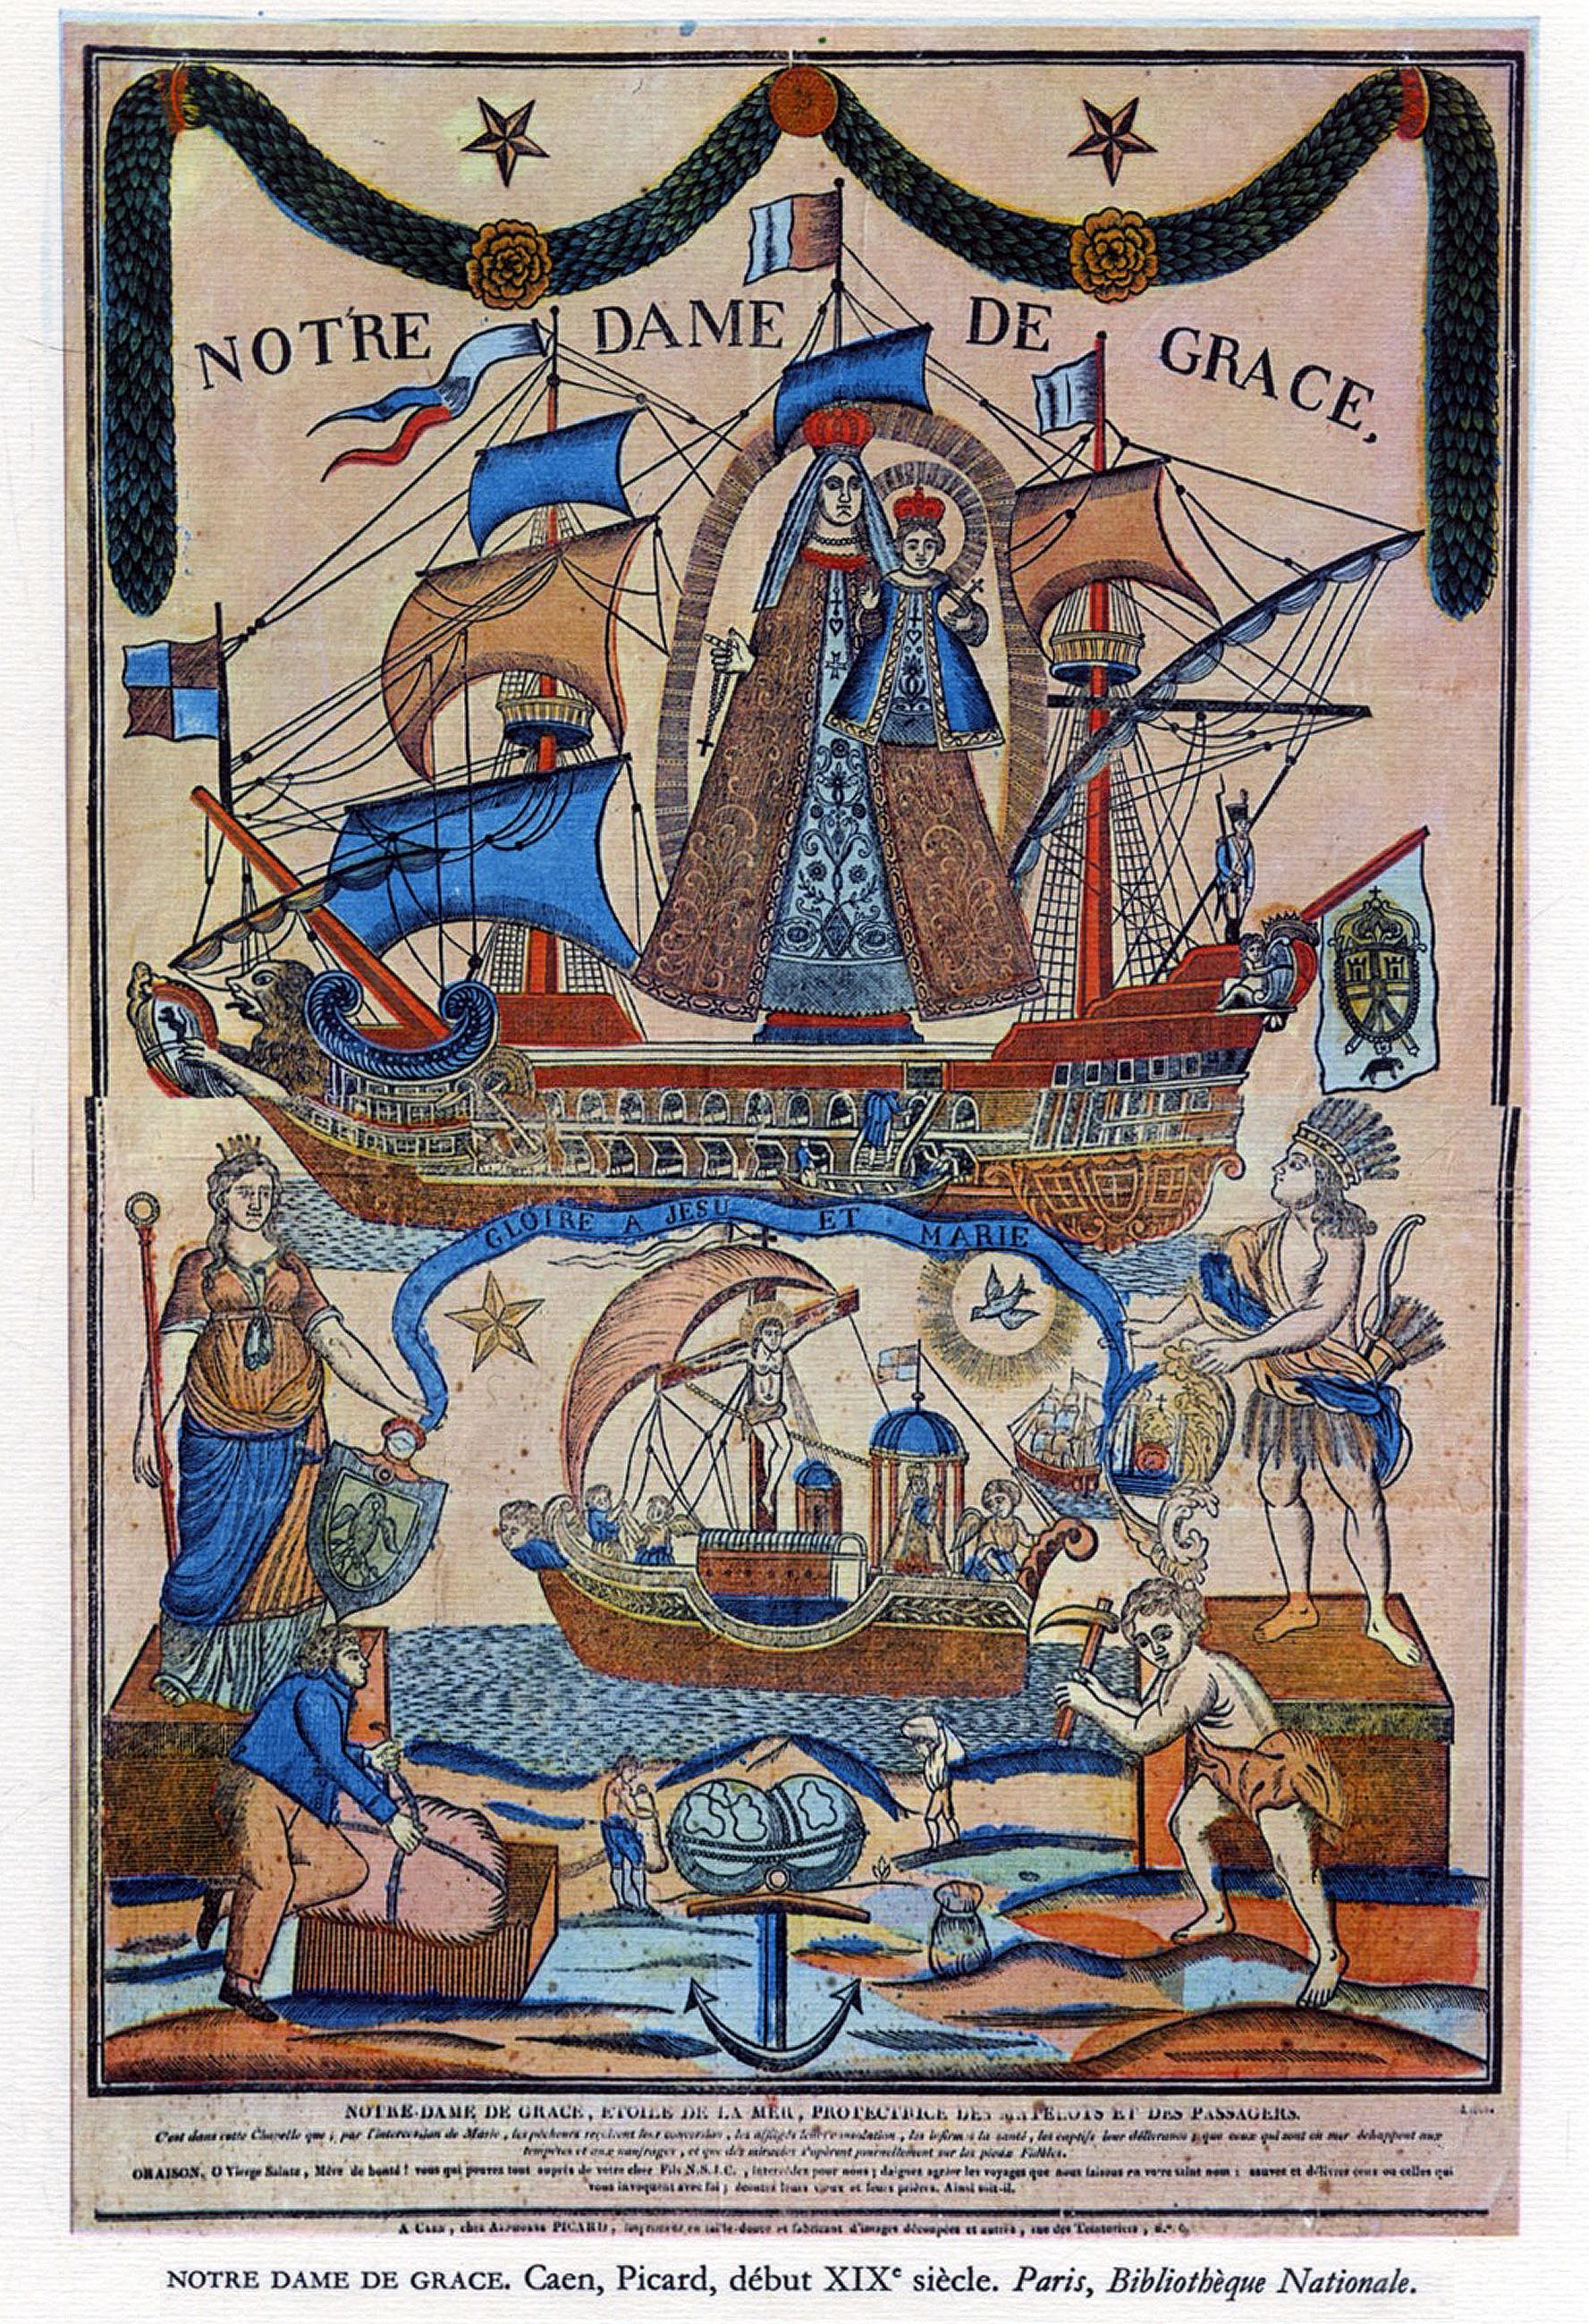 NOTRE DAME DE GRACE,
GLOIRE A JESU ET MARIE
NOTRE-DAME DE GRACE, ETOILE DE LA MER, PROTECTRICE DES MATELOTS ET DES PASSAGERS.
C'est dans cette Chapelle que, par l'intercession de Marie, les pécheurs reçoivent leur conversion, les affligés leur consolation, les infirmes la santé, les captifs leur délivrance; que ceux qui sont en mer échappent aux
tempêtes et aux naufrages, et que des miracles s'opèrent journellement sur les pieux Fidèles.
ORAISON. O Vierge Sainte, Mère de bonté! vous qui pouvez tout auprès de votre cher Fils N.S.J.C., intercédez pour nous; daignez agréer les voyages que nous faisons en votre saint nom: sauvez et délivrez ceux ou celles qui
vous invoquent avec foi; écoutez leurs vœux et leurs prières. Ainsi soit-il.
A CAEN, chez ALPHONSE PICARD, imprimeur en taille-douce et fabricant d'images découpées et autres, rue des Teinturiers, n.º 6.
NOTRE DAME DE GRACE. Caen, Picard, début XIXe siècle. Paris, Bibliothèque Nationale.